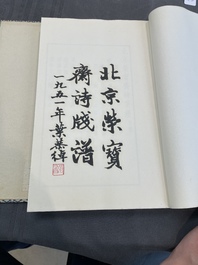 北京榮寶
齋诗牋譜
一九五一年葉恭綽